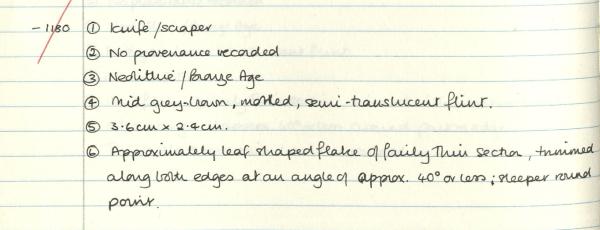 - 1180 ① Knife/scraper
② No provenance recorded
③ Neolithic/Bronze Age
④ Mid grey-brown, mottled, semi-translucent flint.
⑤ 3.6cm x 2.4cm.
⑥ Approximately leaf shaped flake of fairly thin section, trimmed
along both edges at an angle of approx. 40° or less; steeper round
point.